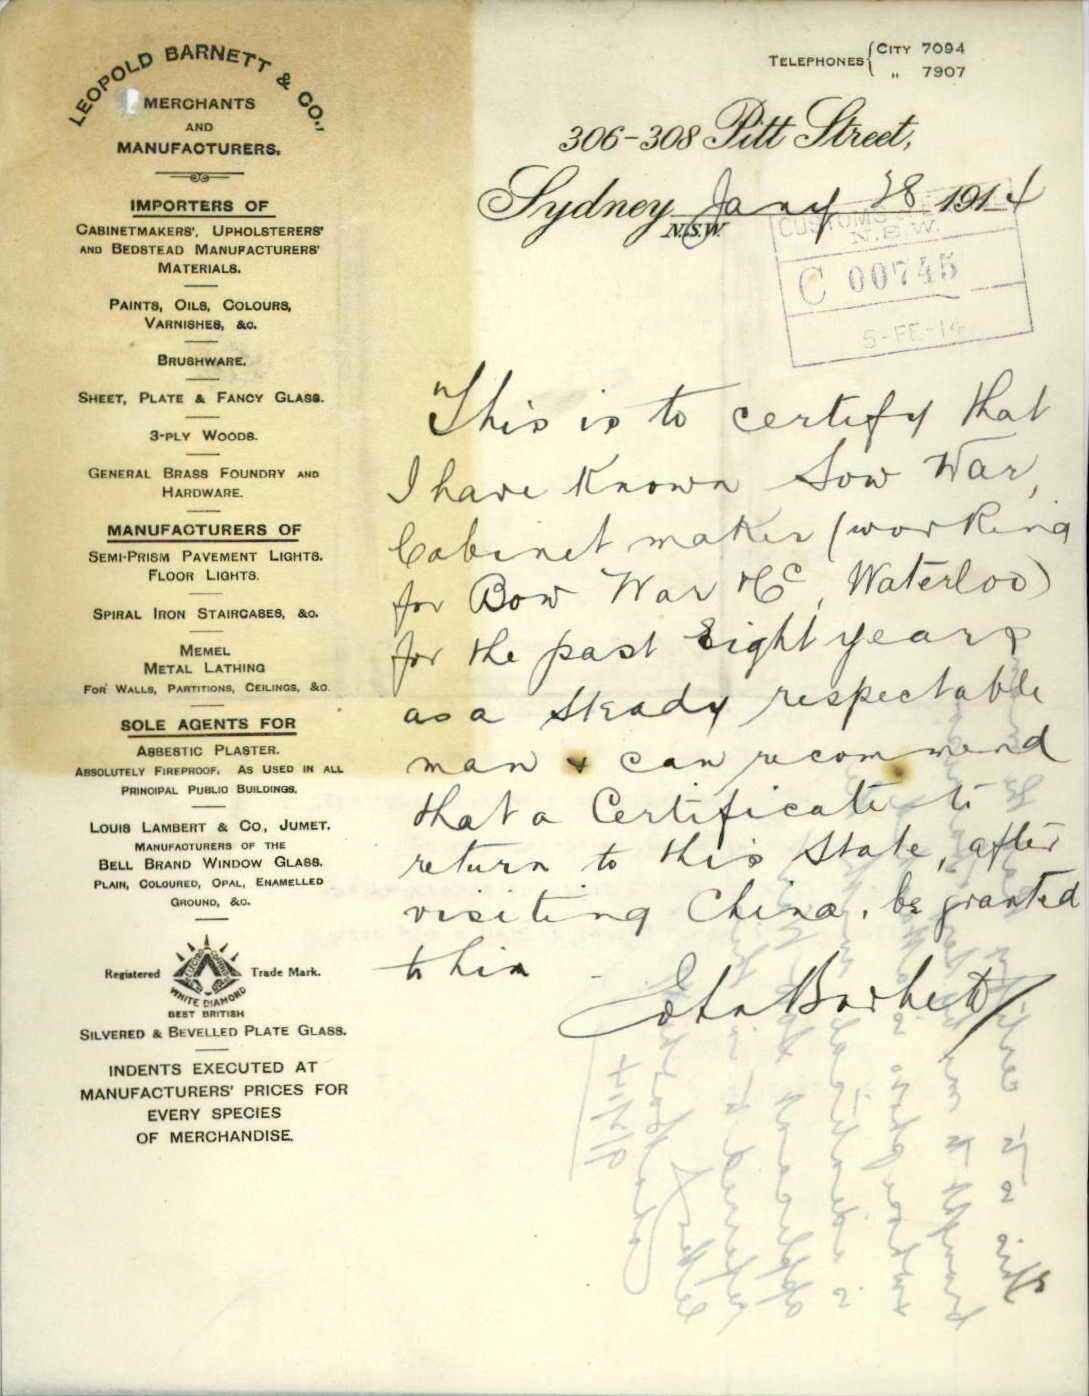 LEOPOLD BARNETT & CO.,
MERCHANTS
AND
MANUFACTURERS.
IMPORTERS OF
CABINETMAKERS', UPHOLSTERERS'
AND BEDSTEAD MANUFACTURERS'
MATERIALS.
PAINTS, OILS, COLOURS,
VARNISHES, &C.
BRUSHWARE.
SHEET, PLATE & FANCY GLASS.
3-PLY WOODS.
GENERAL BRASS FOUNDRY AND
HARDWARE.
MANUFACTURERS OF
SEMI-PRISM PAVEMENT LIGHTS.
FLOOR LIGHTS.
SPIRAL IRON STAIRCASES, &C.
MEMEL
METAL LATHING
FOR WALLS, PARTITIONS, CEILINGS, &C.
SOLE AGENTS FOR
ASBESTIC PLASTER.
ABSOLUTELY FIREPROOF. AS USED IN ALL
PRINCIPAL PUBLIC BUILDINGS.
LOUIS LAMBERT & CO, JUMET.
MANUFACTURERS OF THE
BELL BRAND WINDOW GLASS.
PLAIN, COLOURED, OPAL, ENAMELLED
GROUND, &C.
Registered Trade Mark.
WHITE DIAMOND
BEST BRITISH
SILVERED & BEVELLED PLATE GLASS.
INDENTS EXECUTED AT
MANUFACTURERS' PRICES FOR
EVERY SPECIES
OF MERCHANDISE.
TELEPHONES { CITY 7094
" 7907
306-308 Pitt Street,
Sydney Jany 28 1914
N.S.W.
CUSTOMS
N.S.W.
C 00745
5-FE-14
This is to certify that
I have known Sow War,
Cabinet maker (working
for Bow War & Co, Waterloo)
for the past Eight years
as a steady respectable
man & can recommend
that a Certificate to
return to this State, after
visiting China, be granted
to him